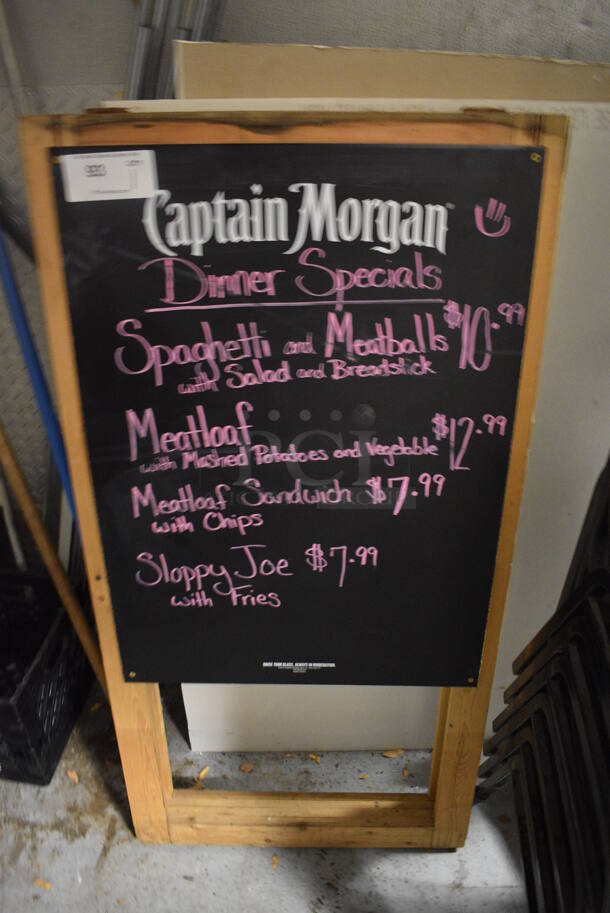 Captain Morgan
Dinner Specials
Spaghetti and Meatballs $10.99
with Salad and Breadstick
Meatloaf $12.99
with Mashed Potatoes and Vegetable
Meatloaf Sandwich $7.99
with Chips
Sloppy Joe $7.99
with Fries
DRINK YOUR GLASS. ALWAYS IN MODERATION.